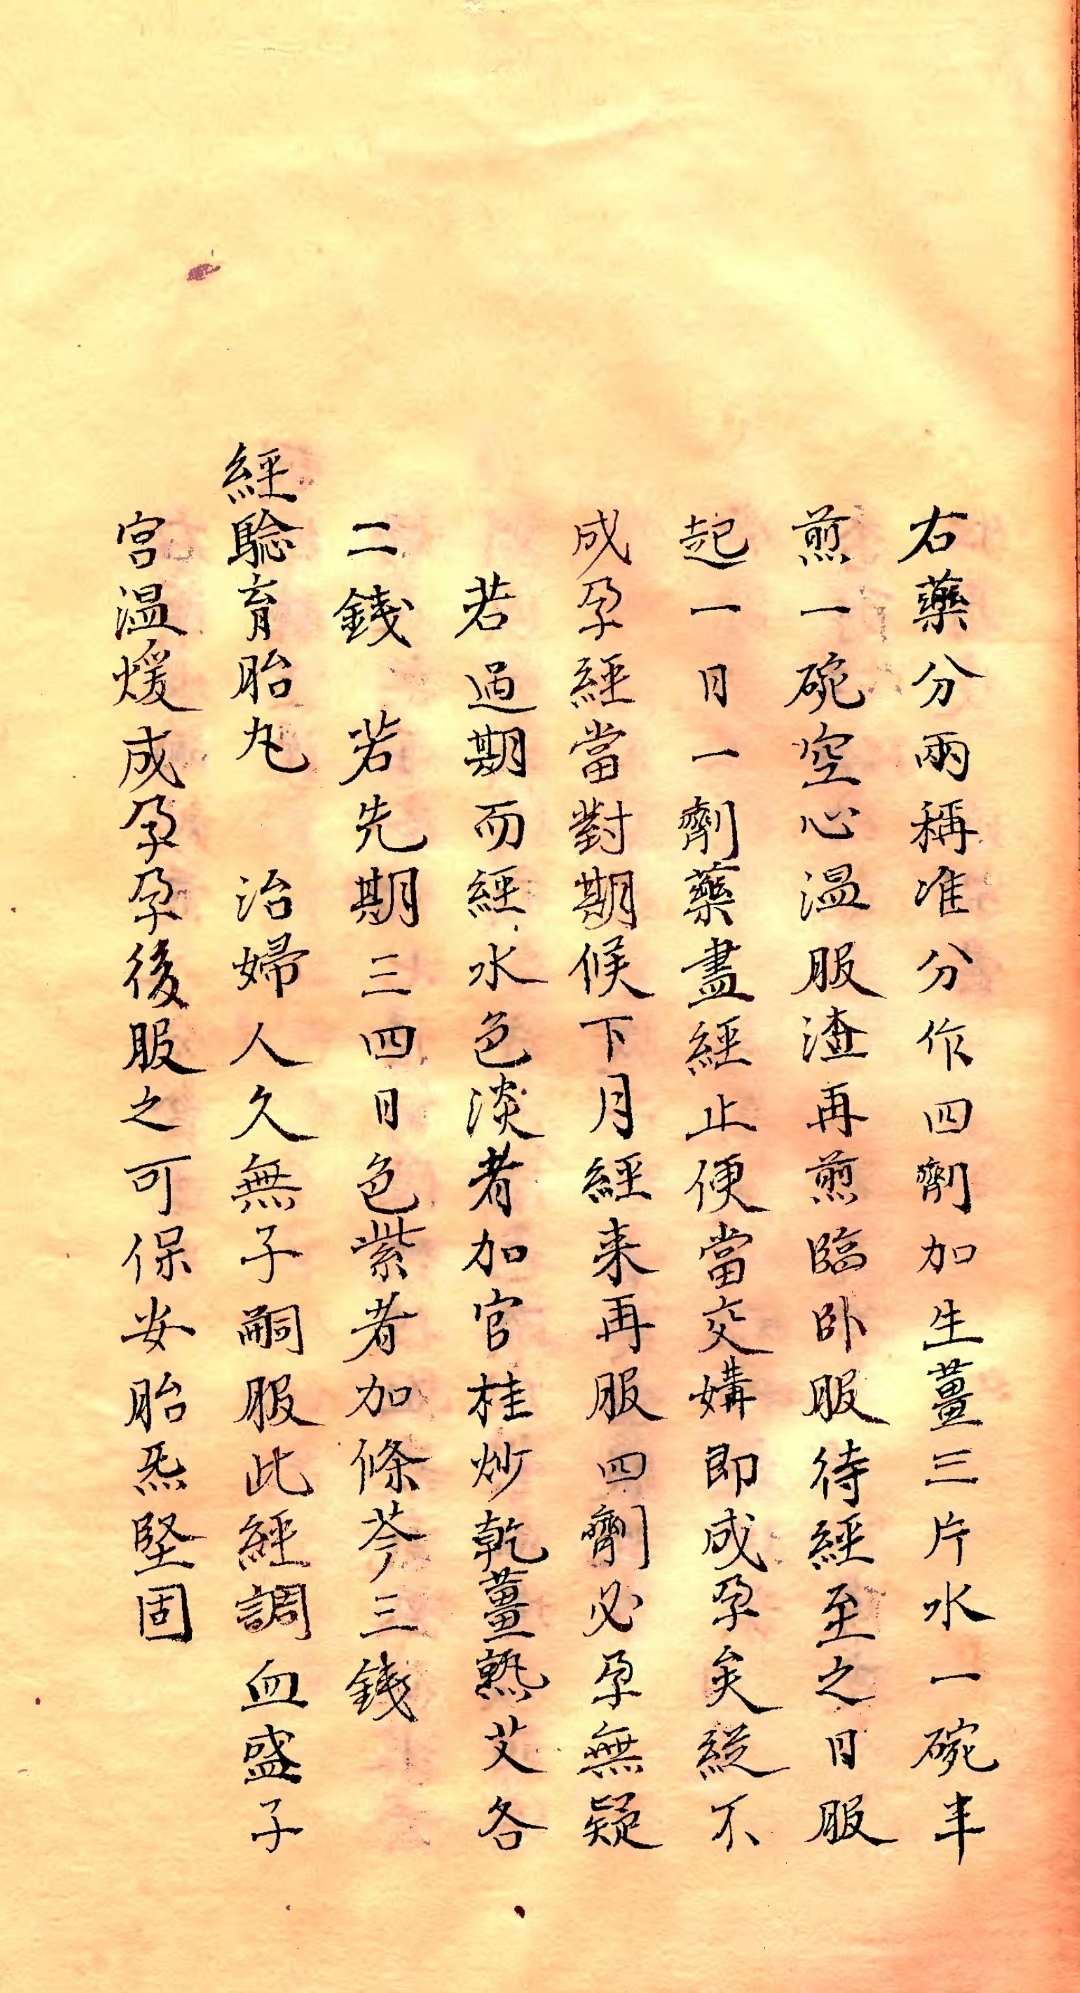 右藥分兩稱准分作四劑加生薑三片水一碗半
煎一碗空心温服渣再煎臨卧服待經至之日服
起一日一劑藥盡經止便當交媾即成孕矣縱不
成孕經當對期候下月經来再服四劑必孕無疑
若過期而經水色淡者加官桂炒乾薑熟艾各
二錢 若先期三四日色紫者加條芩三錢
經驗育胎丸 治婦人久無子嗣服此經調血盛子
宮温煖成孕孕後服之可保安胎炁堅固